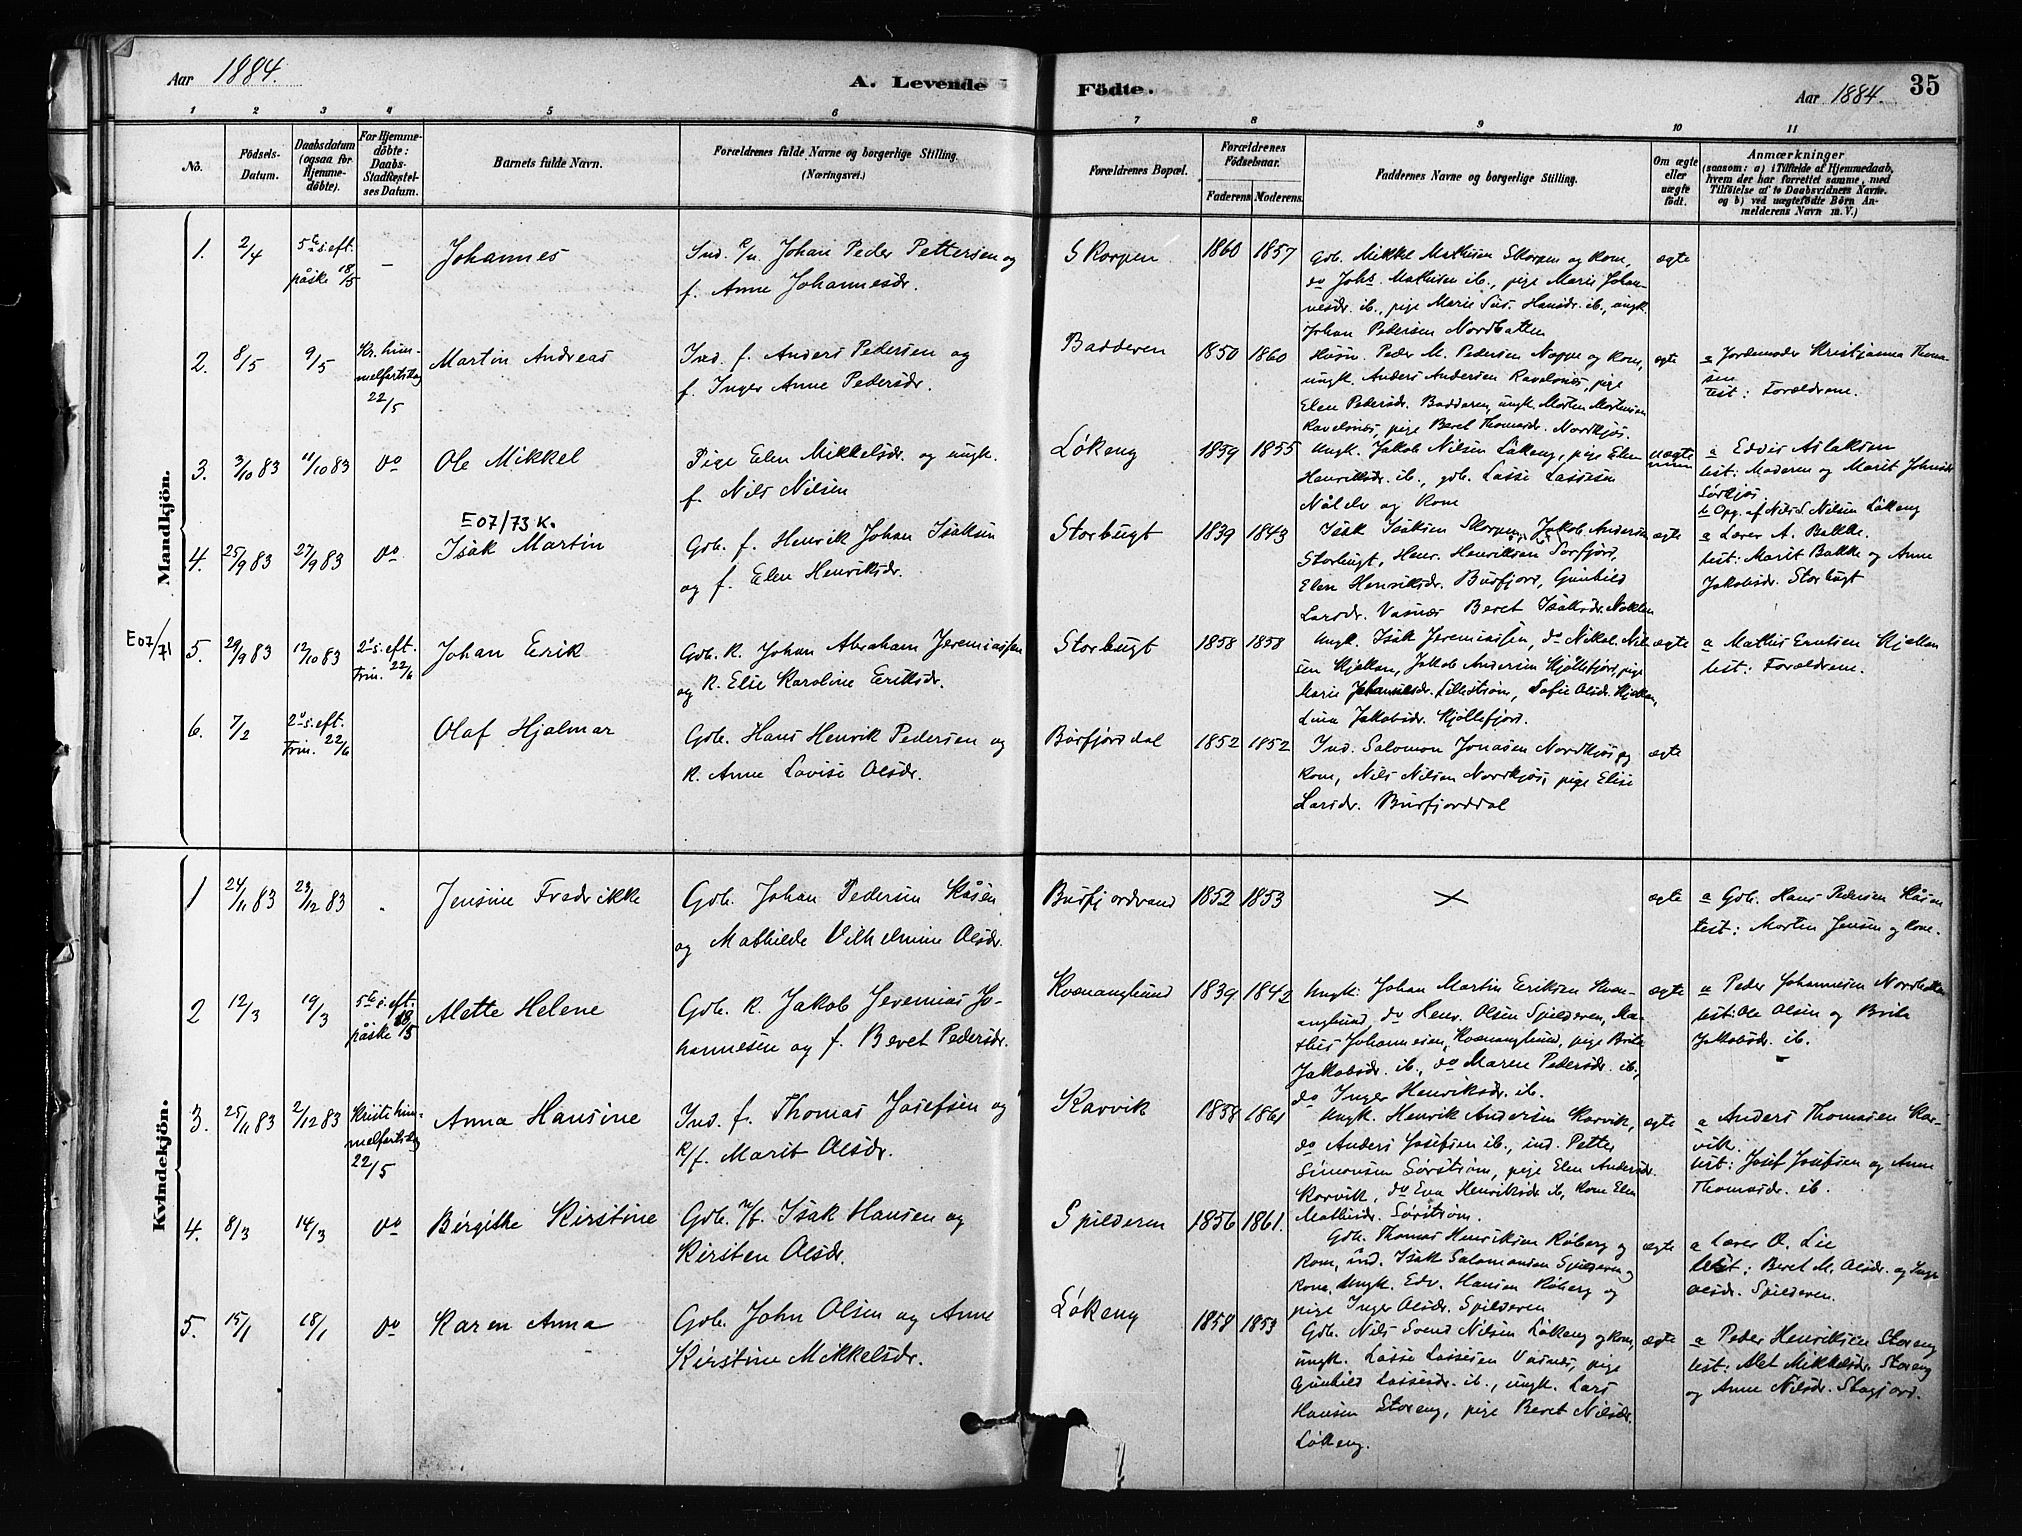 Aar 1884.
A. Levende Födte.
Aar 1884.
35
1 2 3 4 5 6 7 8 9 10 11
No.
Födsels-
Datum.
Daabsdatum
(ogsaa for
Hjemme-
döbte).
For Hjemme-
döbte:
Daabs-
Stadfæstel-
ses Datum.
Barnets fulde Navn.
Forældrenes fulde Navne og borgerlige Stilling.
(Næringsvei.)
Forældrenes Bopæl.
Forældrenes
Födselsaar.
Faderens Moderens.
Faddernes Navne og borgerlige Stilling.
Om ægte
eller
uægte
födt.
Anmærkninger
(saasom: a) i Tilfælde af Hjemmedaab,
hvem der har forrettet samme, med
Tilföielse af to Daabsvidners Navne.
og b) ved uægtefödte Börn An-
melderens Navn m. V.)
Mandkjön.
1. 2/4 5te s. eft. påske 18/5 – Johannes
Ind. Johan Peder Pettersen og
f. Anne Johannesdr.
Skorpen 1860 1857
Gdb. Mikkel Mathisen Skorpen og kone,
do Johs. Mathisen ib., pige Marie Johan-
nesdr. ib., pige Marie Hansdr. ib., ungk.
Johan Pedersen Nordbotten
ægte
2. 8/5 9/5 Kr. him-
melfartsdag
22/5
Martin Andreas
Ind. f. Anders Pedersen og
f. Inger Anne Pedersdr.
Badderen 1850 1860
Peder M. Pedersen Noppe og kone,
ungk. Anders Andersen Ravelnes, pige
Elen Pedersdr. Badderen, ungk. Morten Mortensen
Ravelnes, pige Beret Thomasdr. Nordkjos.
ægte
a Jordemoder Kristjanna Thoma-
sen
test: Forældrene.
3. 3/10 83 11/10 83 do Ole Mikkel
Pige Elen Mikkelsdr. og ungk.
f. Nils Nilsen
Løkeng 1859 1855
Ungk. Jakob Nilsen Løkeng, pige Elen
Henriksdr. ib., gdb. Lasse Lassesen
Nålelv og kone
uægte
a Edvis Aslaksen
test: Moderen og Marit Johnsdr.
Sørkjos
b Opg. af Nils S. Nilsen Løkeng
E07/73 K.
4. 25/9 83 27/9 83 do Isak Martin
Gdb. f. Henrik Johan Isaksen
og f. Elen Henriksdr.
Storbugt 1839 1843
Isak Isaksen Skorpen, Jakob Andersen
Storbugt, Henr. Henriksen Sørfjord,
Elen Henriksdr. Burfjord, Gunhild
Larsdr. Vasnæs Beret Isaksdr. Noklen
ægte
a Lærer A. Bakke.
test: Marit Bakke og Anne
Jakobsdr. Storbugt
E07/71
5. 29/9 83 12/10 83 2d s. eft.
Trin. 22/6
Johan Erik
Gdb. K. Johan Abraham Jeremiassen
og K. Elie Karoline Eriksdr.
Storbugt 1858 1858
Ungk. Isak Jeremiassen, do Nikol. Nil-
sen Kjellan, Jakob Andersen Kjøllefjord, pige
Marie Johannesdr. Lillestrøm, Sofie Olsdr. Kjellan,
Lina Jakobsdr. Kjøllefjord.
ægte
a Mathis Erntsen Kjellan
test: Forældrene.
6. 7/2 2d s. eft.
Trin. 22/6
Olaf Hjalmar
Gdb. Hans Henrik Pedersen og
K. Anne Lovise Olsdr.
Burfjorddal 1852 1852
Ind. Salomon Jonasen Nordkjos og
kone, Nils Nilsen Nordkjos, pige Elise
Larsdr. Burfjorddal
ægte
Kvindekjön.
1 24/11 83 23/12 83 Jensine Fredrikke
Gdb. Johan Pedersen Kåsen
og Mathilde Vilhelmine Olsdr.
Burfjordvand 1852 1853
×
ægte
a Gdb. Hans Pedersen Kåsen
test: Morten Jensen og kone.
2 12/3 19/3 5te s. eft.
påske 18/5
Alette Helene
Gdb. K. Jakob Jeremias Jo-
hannesen og f. Beret Pedersdr.
Kvænangbund 1839 1842
Ungk. Johan Martin Eriksen Kvæn-
angbund, do Henr. Olsen Spilderen, Ma-
this Johannesen, Kvænangbund, pige Brita
Jakobsdr. ib., do Maren Pedersdr. ib.,
do Inger Henriksdr. ib.
ægte
a Peder Johannesen Nordbotten
test: Ole Olsen og Brita
Jakobsdr. ib.
3. 25/11 83 2/12 83 Kristi him-
melfartsdag
22/5
Anna Hansine
Ind. f. Thomas Josefsen og
K/f. Marit Olsdr.
Karvik 1858 1861
Ungk. Henrik Andersen Karvik,
do Anders Josefsen ib., ind. Petter
Simonsen Sørstrøm, pige Elen Andersdr.
Karvik, do Eva Henriksdr. ib., kone Elen
Mathisdr. Sørstrøm.
ægte
a Anders Thomasen Kar-
vik.
test: Josef Josefsen og Anne
Thomasdr. ib.
4. 8/3 14/3 do Birgithe Kirstine
Gdb. n/f. Isak Hansen og
Kirsten Olsdr.
Spilderen 1856 1861.
Gdb. Thomas Henriksen Røberg og
kone, ind. Isak Salomonsen Spilderen og
kone, ungk. Edv. Hansen Røberg og
pige Inger Olsdr. Spilderen
ægte
a Lærer O. Lie
test: Beret M. Olsdr. og Inge
Olsdr. Spilderen.
5. 15/1 18/1 do Karen Anna
Gdb. John Olsen og Anne
Kirstine Mikkelsdr.
Løkeng 1858 1853
Gdb. Nils Svend Nilsen Løkeng og kone,
ungk. Lasse Lassesen Vasnes, pige
Gunhild Lassesdr. ib., ungk. Lars
Hansen Storeng, pige Beret Nilsdr.
Løkeng.
ægte
a Peder Henriksen Storeng
test: Alet Mikkelsdr. Storeng
og Anne Nilsdr.